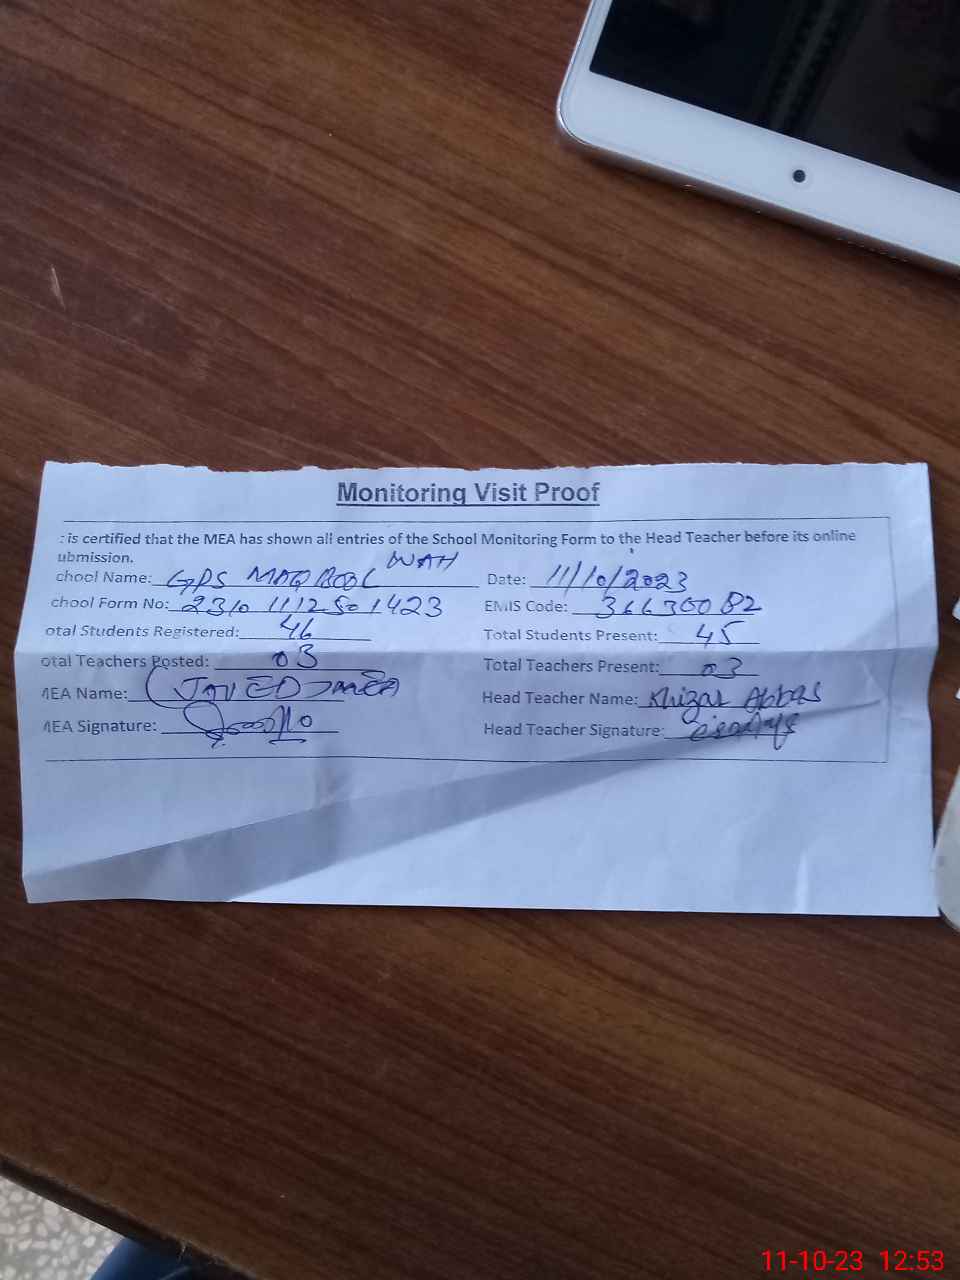 Monitoring Visit Proof
: is certified that the MEA has shown all entries of the School Monitoring Form to the Head Teacher before its online
ubmission.
chool Name: GPS MAQBOOL WAH Date: 11/10/2023
chool Form No: 2310 1112501423 EMIS Code: 36630082
otal Students Registered: 46 Total Students Present: 45
otal Teachers Posted: 03 Total Teachers Present: 03
MEA Name: JAVED Head Teacher Name: Khizar Abbas
MEA Signature: Head Teacher Signature:
11-10-23 12:53